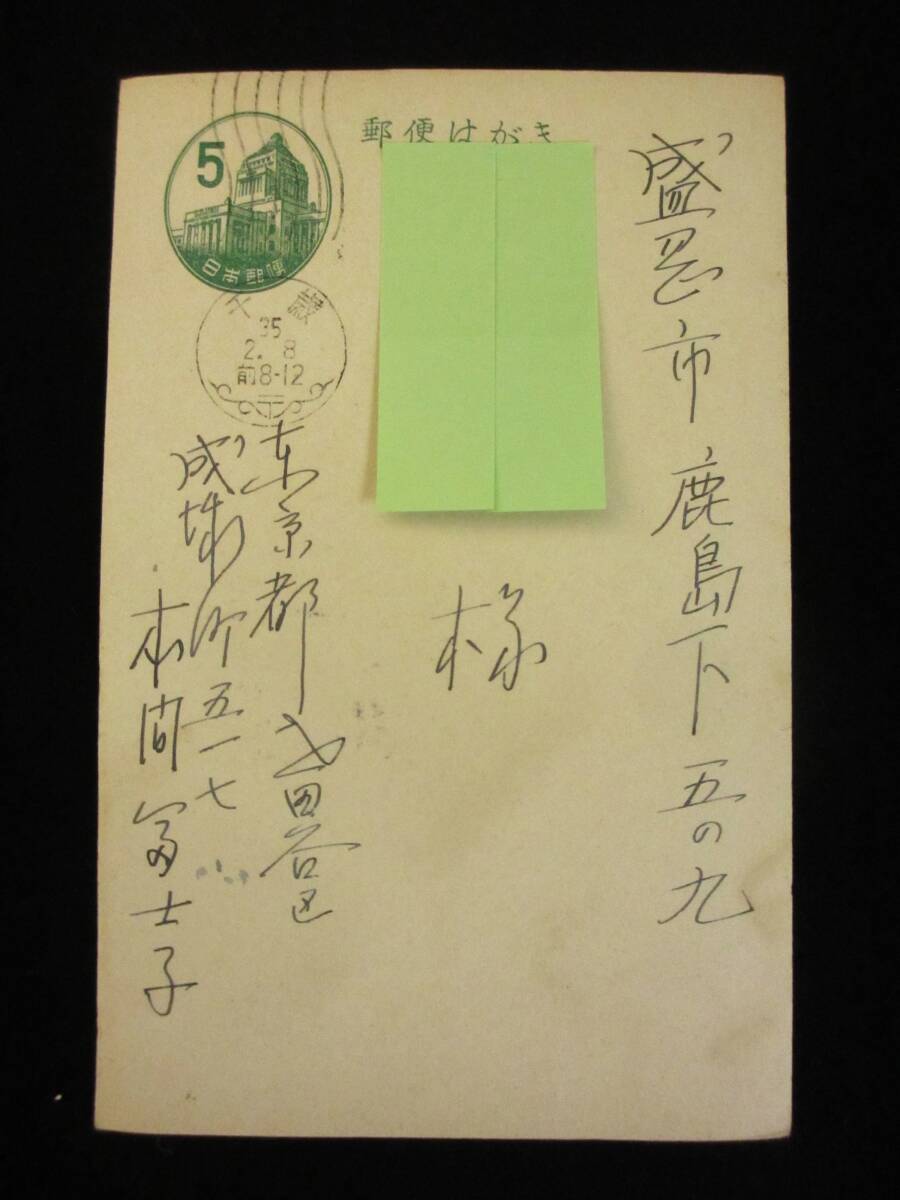 郵便はがき
5
日本郵便
千歳
35
2. 8
前8-12
盛岡市鹿島下五の九
様
東京都世田谷区
成城町五一七
本間富士子